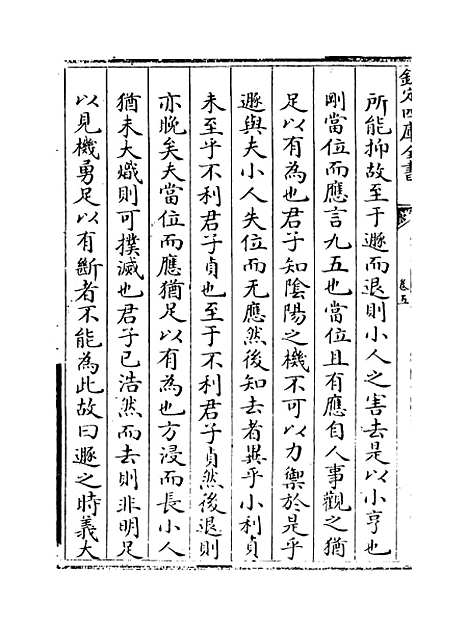 欽定四庫全書
卷五
所能抑故至于遯而退則小人之害去是以小亨也
剛當位而應言九五也當位且有應自人事觀之猶
足以有為也君子知陰陽之機不可以力禦於是乎
遯與夫小人失位而无應然後知去者異乎小利貞
未至乎不利君子貞也至于不利君子貞然後退則
亦晚矣夫當位而應猶足以有為也方浸而長小人
猶未大熾則可撲滅也君子已浩然而去則非明足
以見機勇足以有斷者不能為此故曰遯之時義大